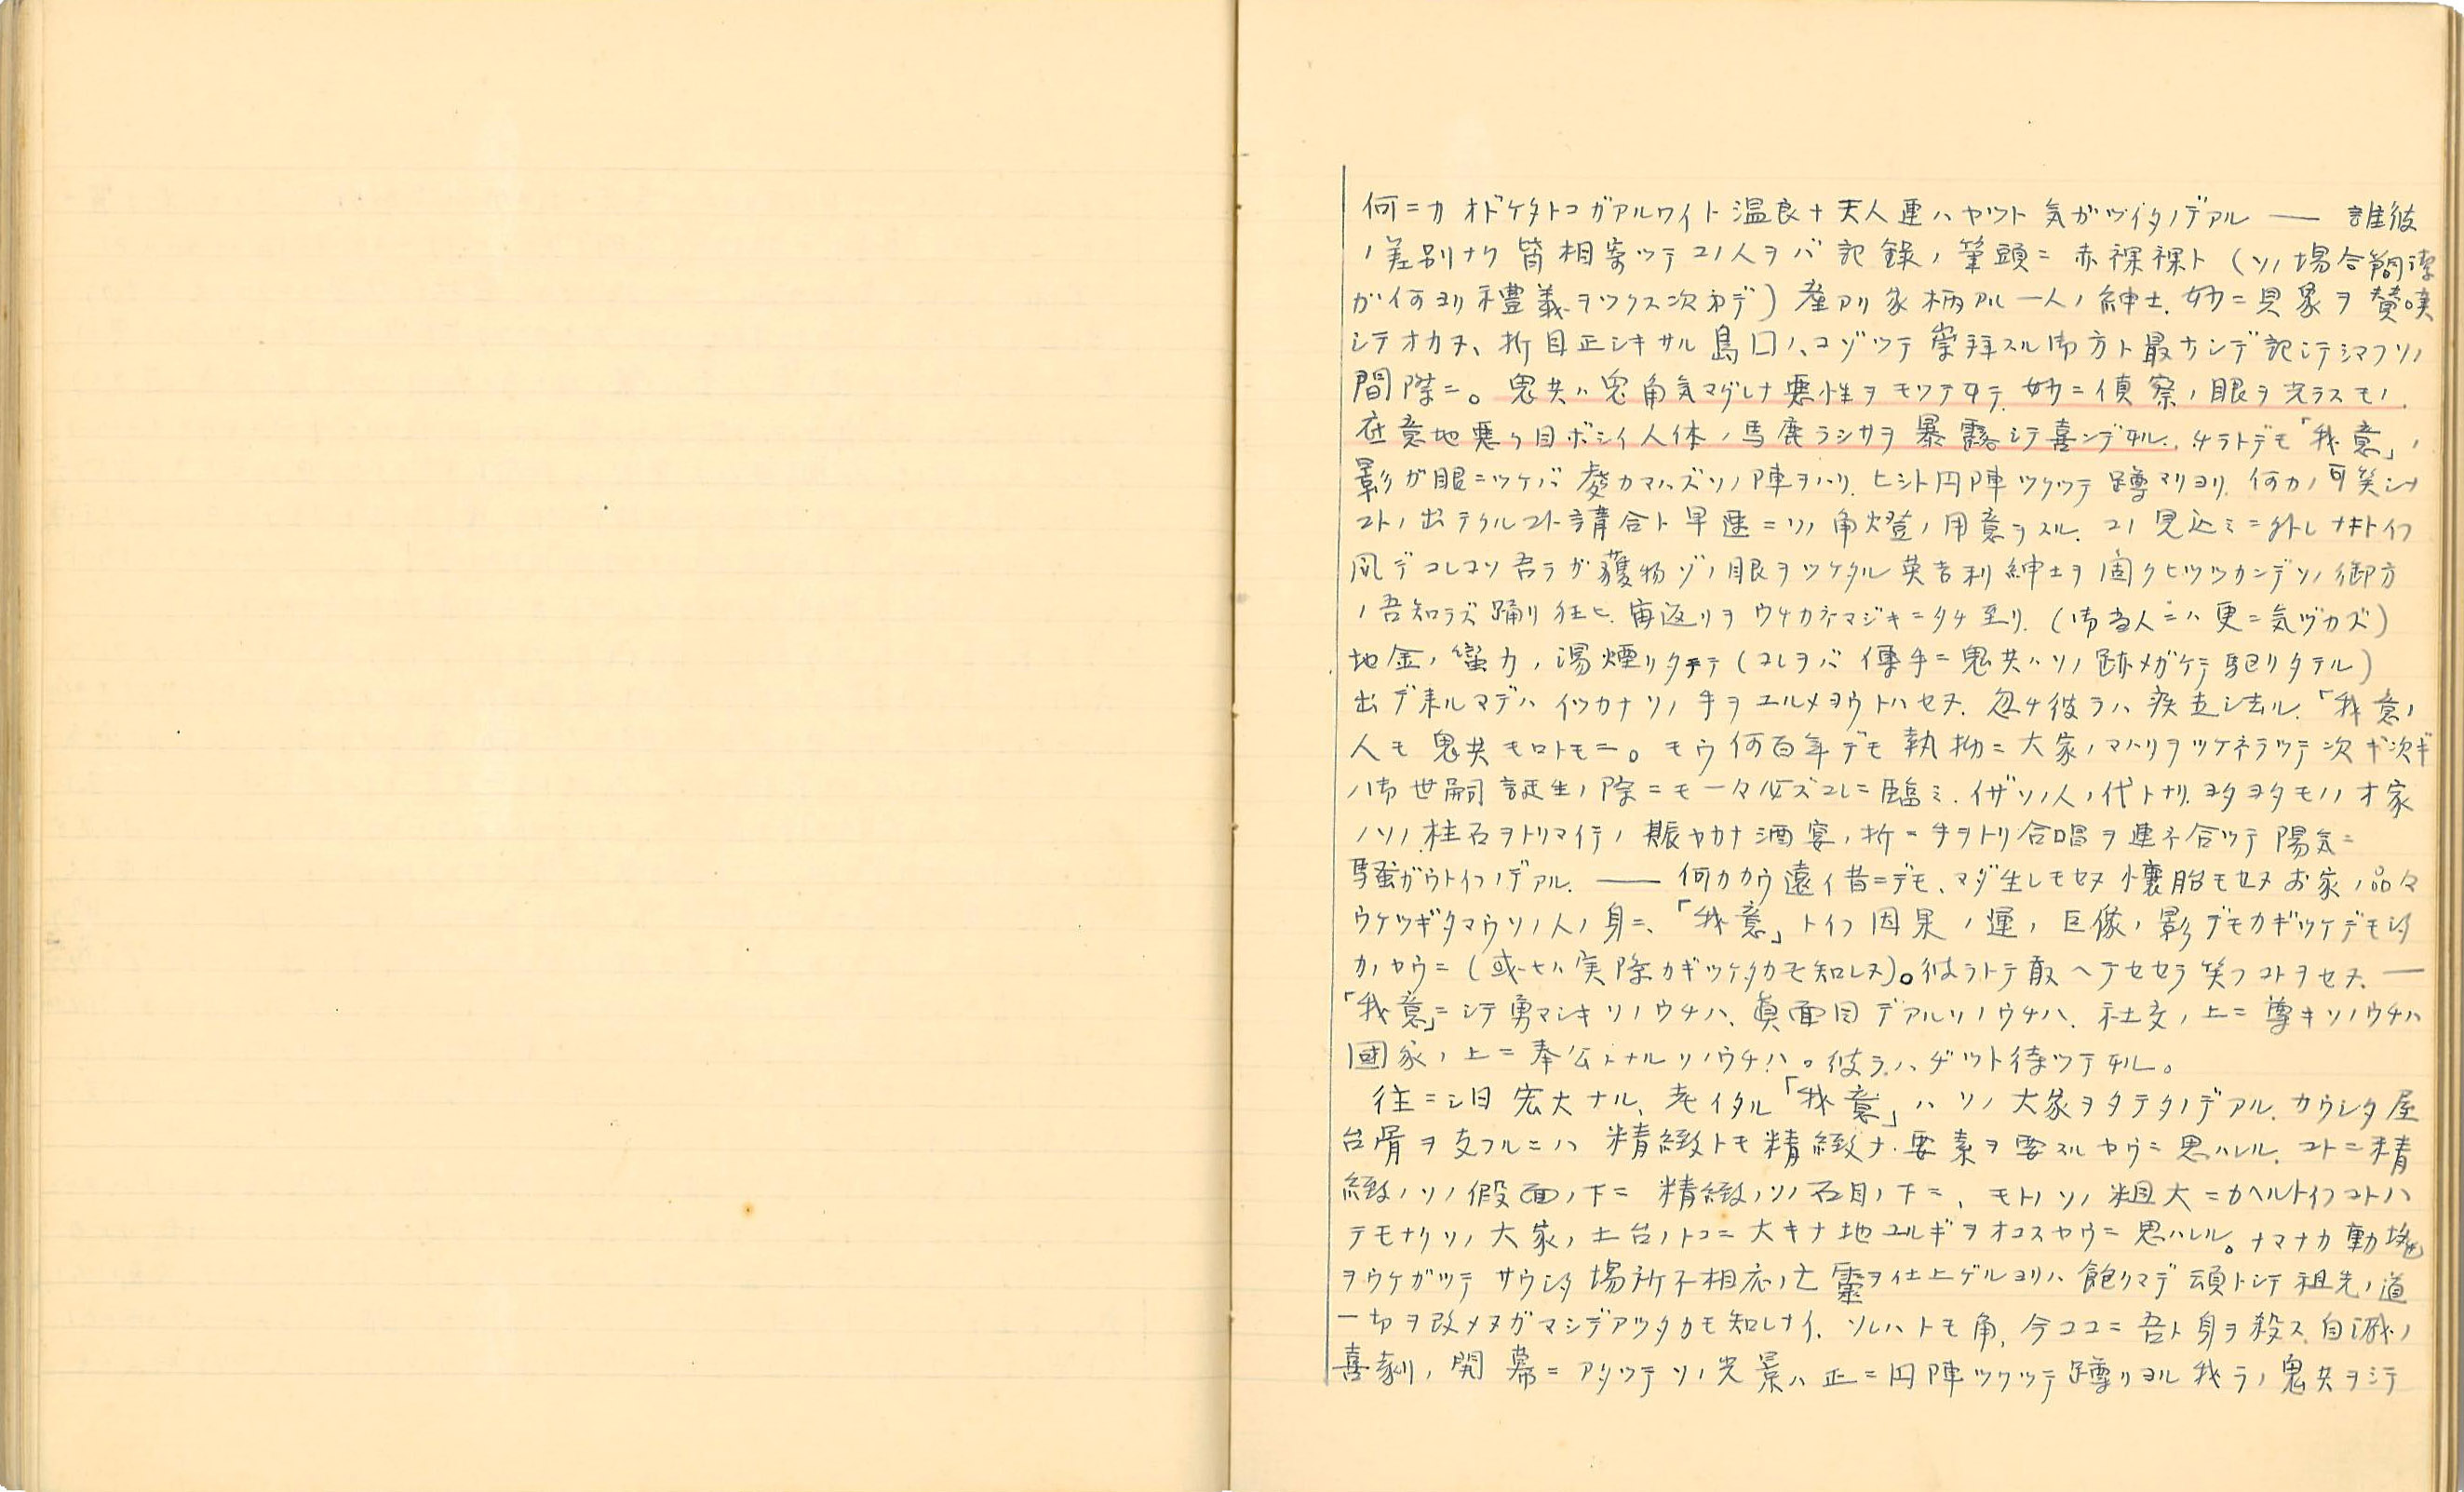 何ニカオドケタトコガアルワイト温良ナ天人連ハヤツト気ガヅイタノデアル —— 誰彼
ノ差別ナク皆相寄ツテコノ人ヲバ記録ノ筆頭ニ赤裸裸ト(ソノ場合簡潔
ガ何ヨリ禮義ヲツクス次第デ)産アリ家柄アル一人ノ紳士、妙ニ具象ヲ賛嘆
シテオカヌ、折目正シキサル島国ハ、コゾツテ崇拝スル御方ト最ナンデ記シテシマフソノ
間際ニ。鬼共ハ兎角気マグレナ悪性ヲモツテヰテ、妙ニ偵察ノ眼ヲ光ラスモノ、
在意地悪ク目ボシイ人体ノ馬鹿ラシサヲ暴露シテ喜ンデヰル、チラトデモ「我意」ノ
影ガ眼ニツケバ処カマハズソノ陣ヲハリ、ヒシト円陣ツクツテ蹲マリヨリ、何カノ可笑シナ
コトノ出テクルコト請合ト早速ニソノ角燈ノ用意ヲスル、コノ見込ミニ外レナキトイフ
風デコレコソ吾ラガ獲物ゾノ眼ヲツケタル英吉利紳士ヲ固クヒツツカンデソノ御方
ノ吾知ラズ踊リ狂ヒ、宙返リヲウチカネマジキニタチ至リ、(御当人ニハ更ニ気ヅカズ)
地金ノ蛮力ノ湯煙リタテテ(コレヲバ傳手ニ鬼共ハソノ跡メガケテ駆リタテル)
出デ来ルマデハイツカナソノ手ヲユルメヨウトハセヌ、忽チ彼ラハ疾走シ去ル、「我意」ノ
人モ鬼共モロトモニ。モウ何百年デモ執拗ニ大家ノマハリヲツケネラツテ次ギ次ギ
ノ御世嗣誕生ノ際ニモ一々必ズコレニ臨ミ、イザソノ人ノ代トナリ、ヨタヨタモノノオ家
ノソノ柱石ヲトリマイテノ賑ヤカナ酒宴ノ折ニ手ヲトリ合唱ヲ連ネ合ツテ陽気ニ
騒ガウトイフノデアル、—— 何カカウ遠イ昔ニデモ、マダ生レモセヌ懐胎モセヌお家ノ品々
ウケツギタマウソノ人ノ身ニ、「我意」トイフ因果ノ運ノ巨像ノ影デモカギツケデモシタ
カノヤウニ(或ヒハ実際カギツケタカモ知レヌ)。彼ラトテ敢ヘテセセラ笑フコトヲセヌ、——
「我意」ニシテ勇マシキソノウチハ、眞面目デアルソノウチハ、社交ノ上ニ尊キソノウチハ
國家ノ上ニ奉公トナルソノウチハ。彼ラハヂツト待ツテヰル。
往ニシ日宏大ナル、老イタル「我意」ハソノ大家ヲタテタノデアル、カウシタ屋
台骨ヲ支フルニハ精緻トモ精緻ナ要素ヲ要スルヤウニ思ハレル、コトニ精
緻ノソノ假面ノ下ニ精緻ノソノ石目ノ下ニ、モトノソノ粗大ニカヘルトイフコトハ
テモナクソノ大家ノ土台ノトコニ大キナ地ユルギヲオコスヤウニ思ハレル。ナマナカ動揺
ヲウケガツテサウシタ場所不相応ノ亡霊ヲ仕上ゲルヨリハ飽クマデ頑トシテ祖先ノ道
一切ヲ改メヌガマシデアツタカモ知レナイ、ソレハトモ角、今ココニ吾ト身ヲ殺ス、自滅ノ
喜劇ノ開幕ニアタツテソノ光景ハ正ニ円陣ツクツテ蹲リヨル我ラノ鬼共ヲシテ